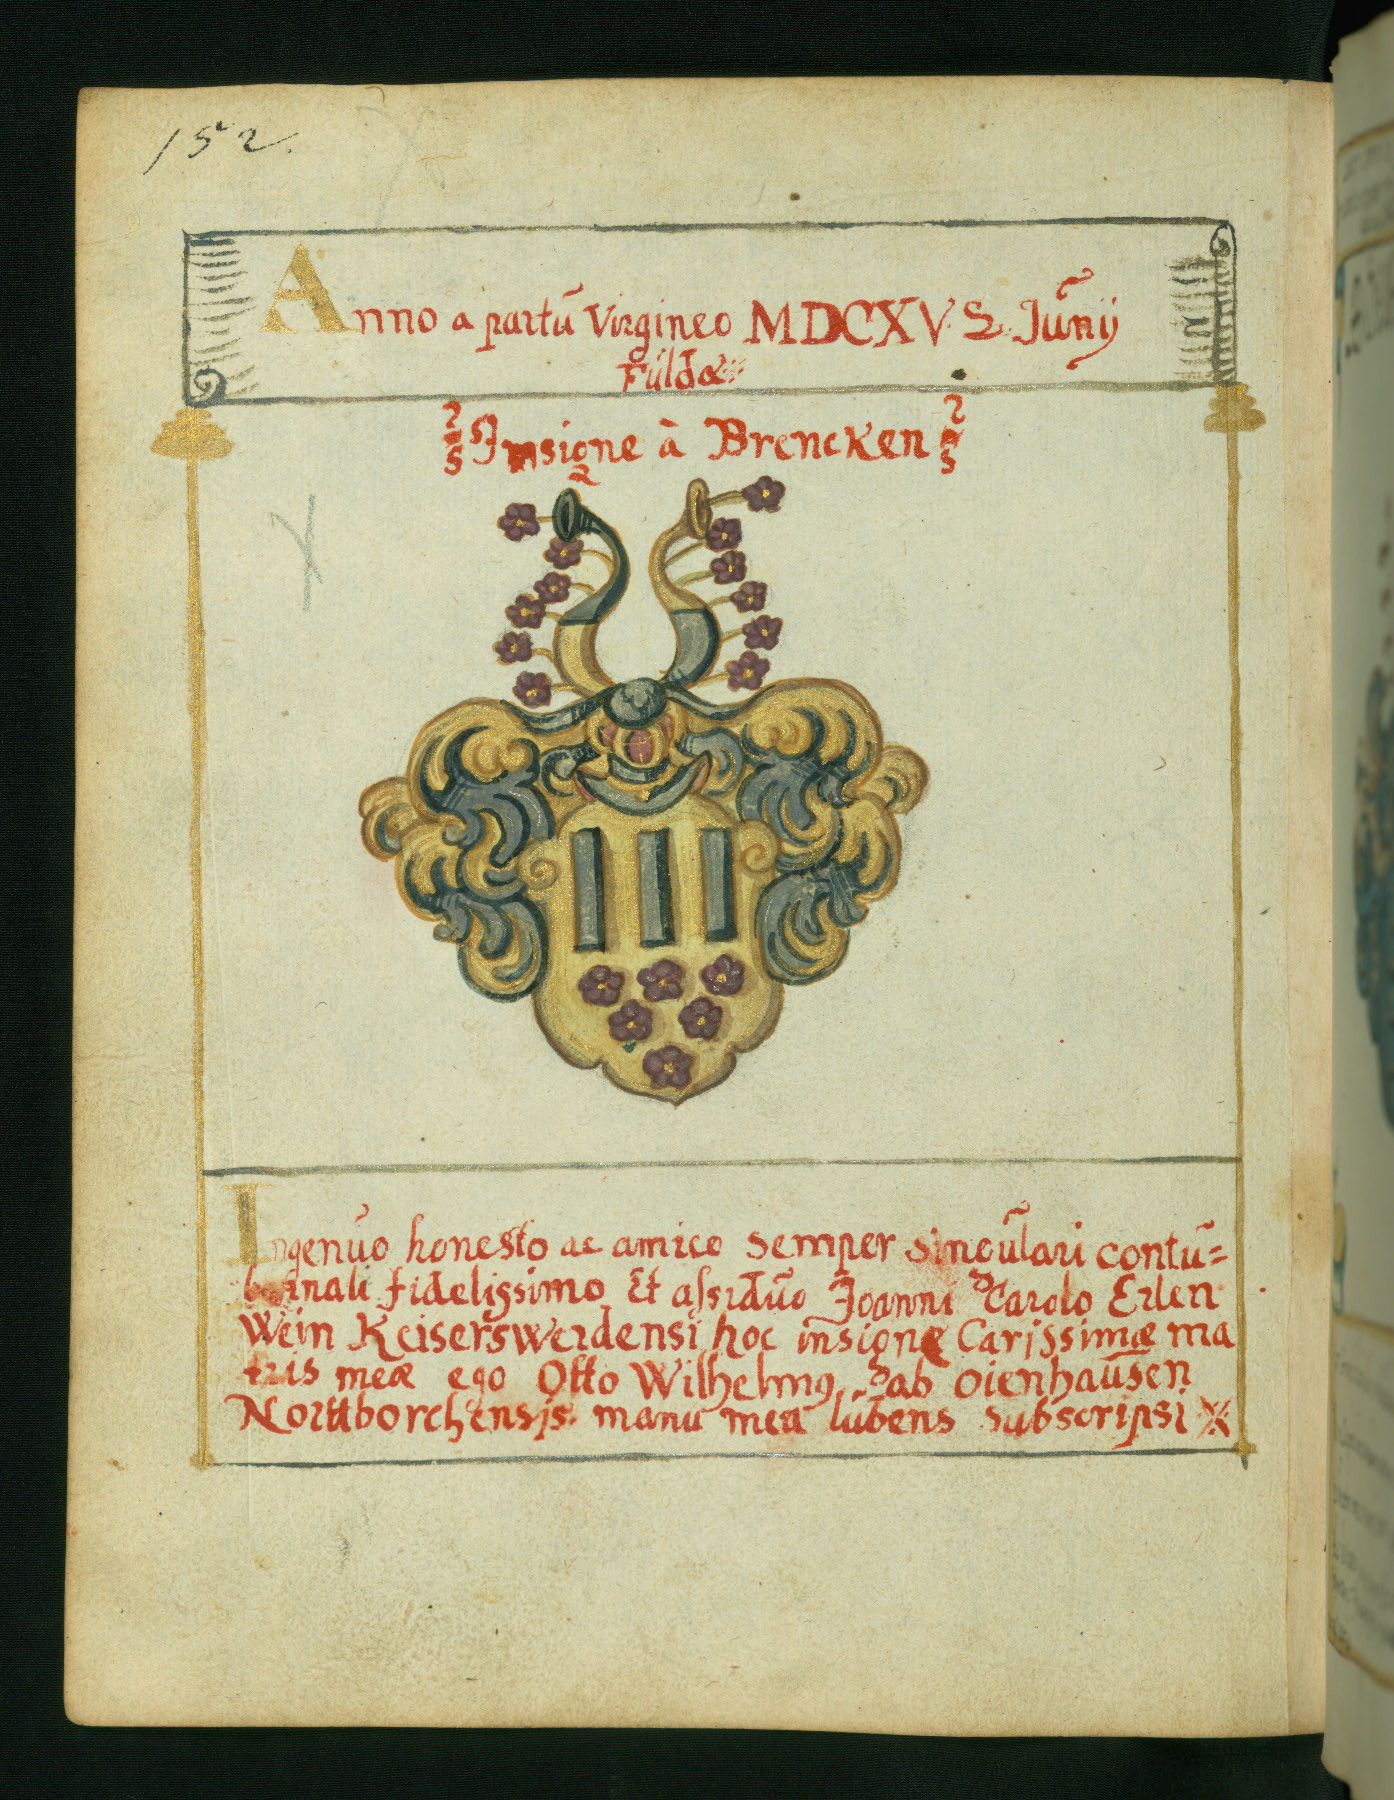 152.
Anno a partu Virgineo MDCXV 2 Junij
Fuldæ
Insigne à Brencken
Ingenuo honesto ac amico semper singulari contu=
bernali fidelissimo Et assiduo Joanni Carolo Erlen
Wein Keiserswerdensi hoc insigne Carissimæ ma
tris meæ ego Otto Wilhelmus ab oienhausen
Norttborchensis manu mea lubens subscripsi